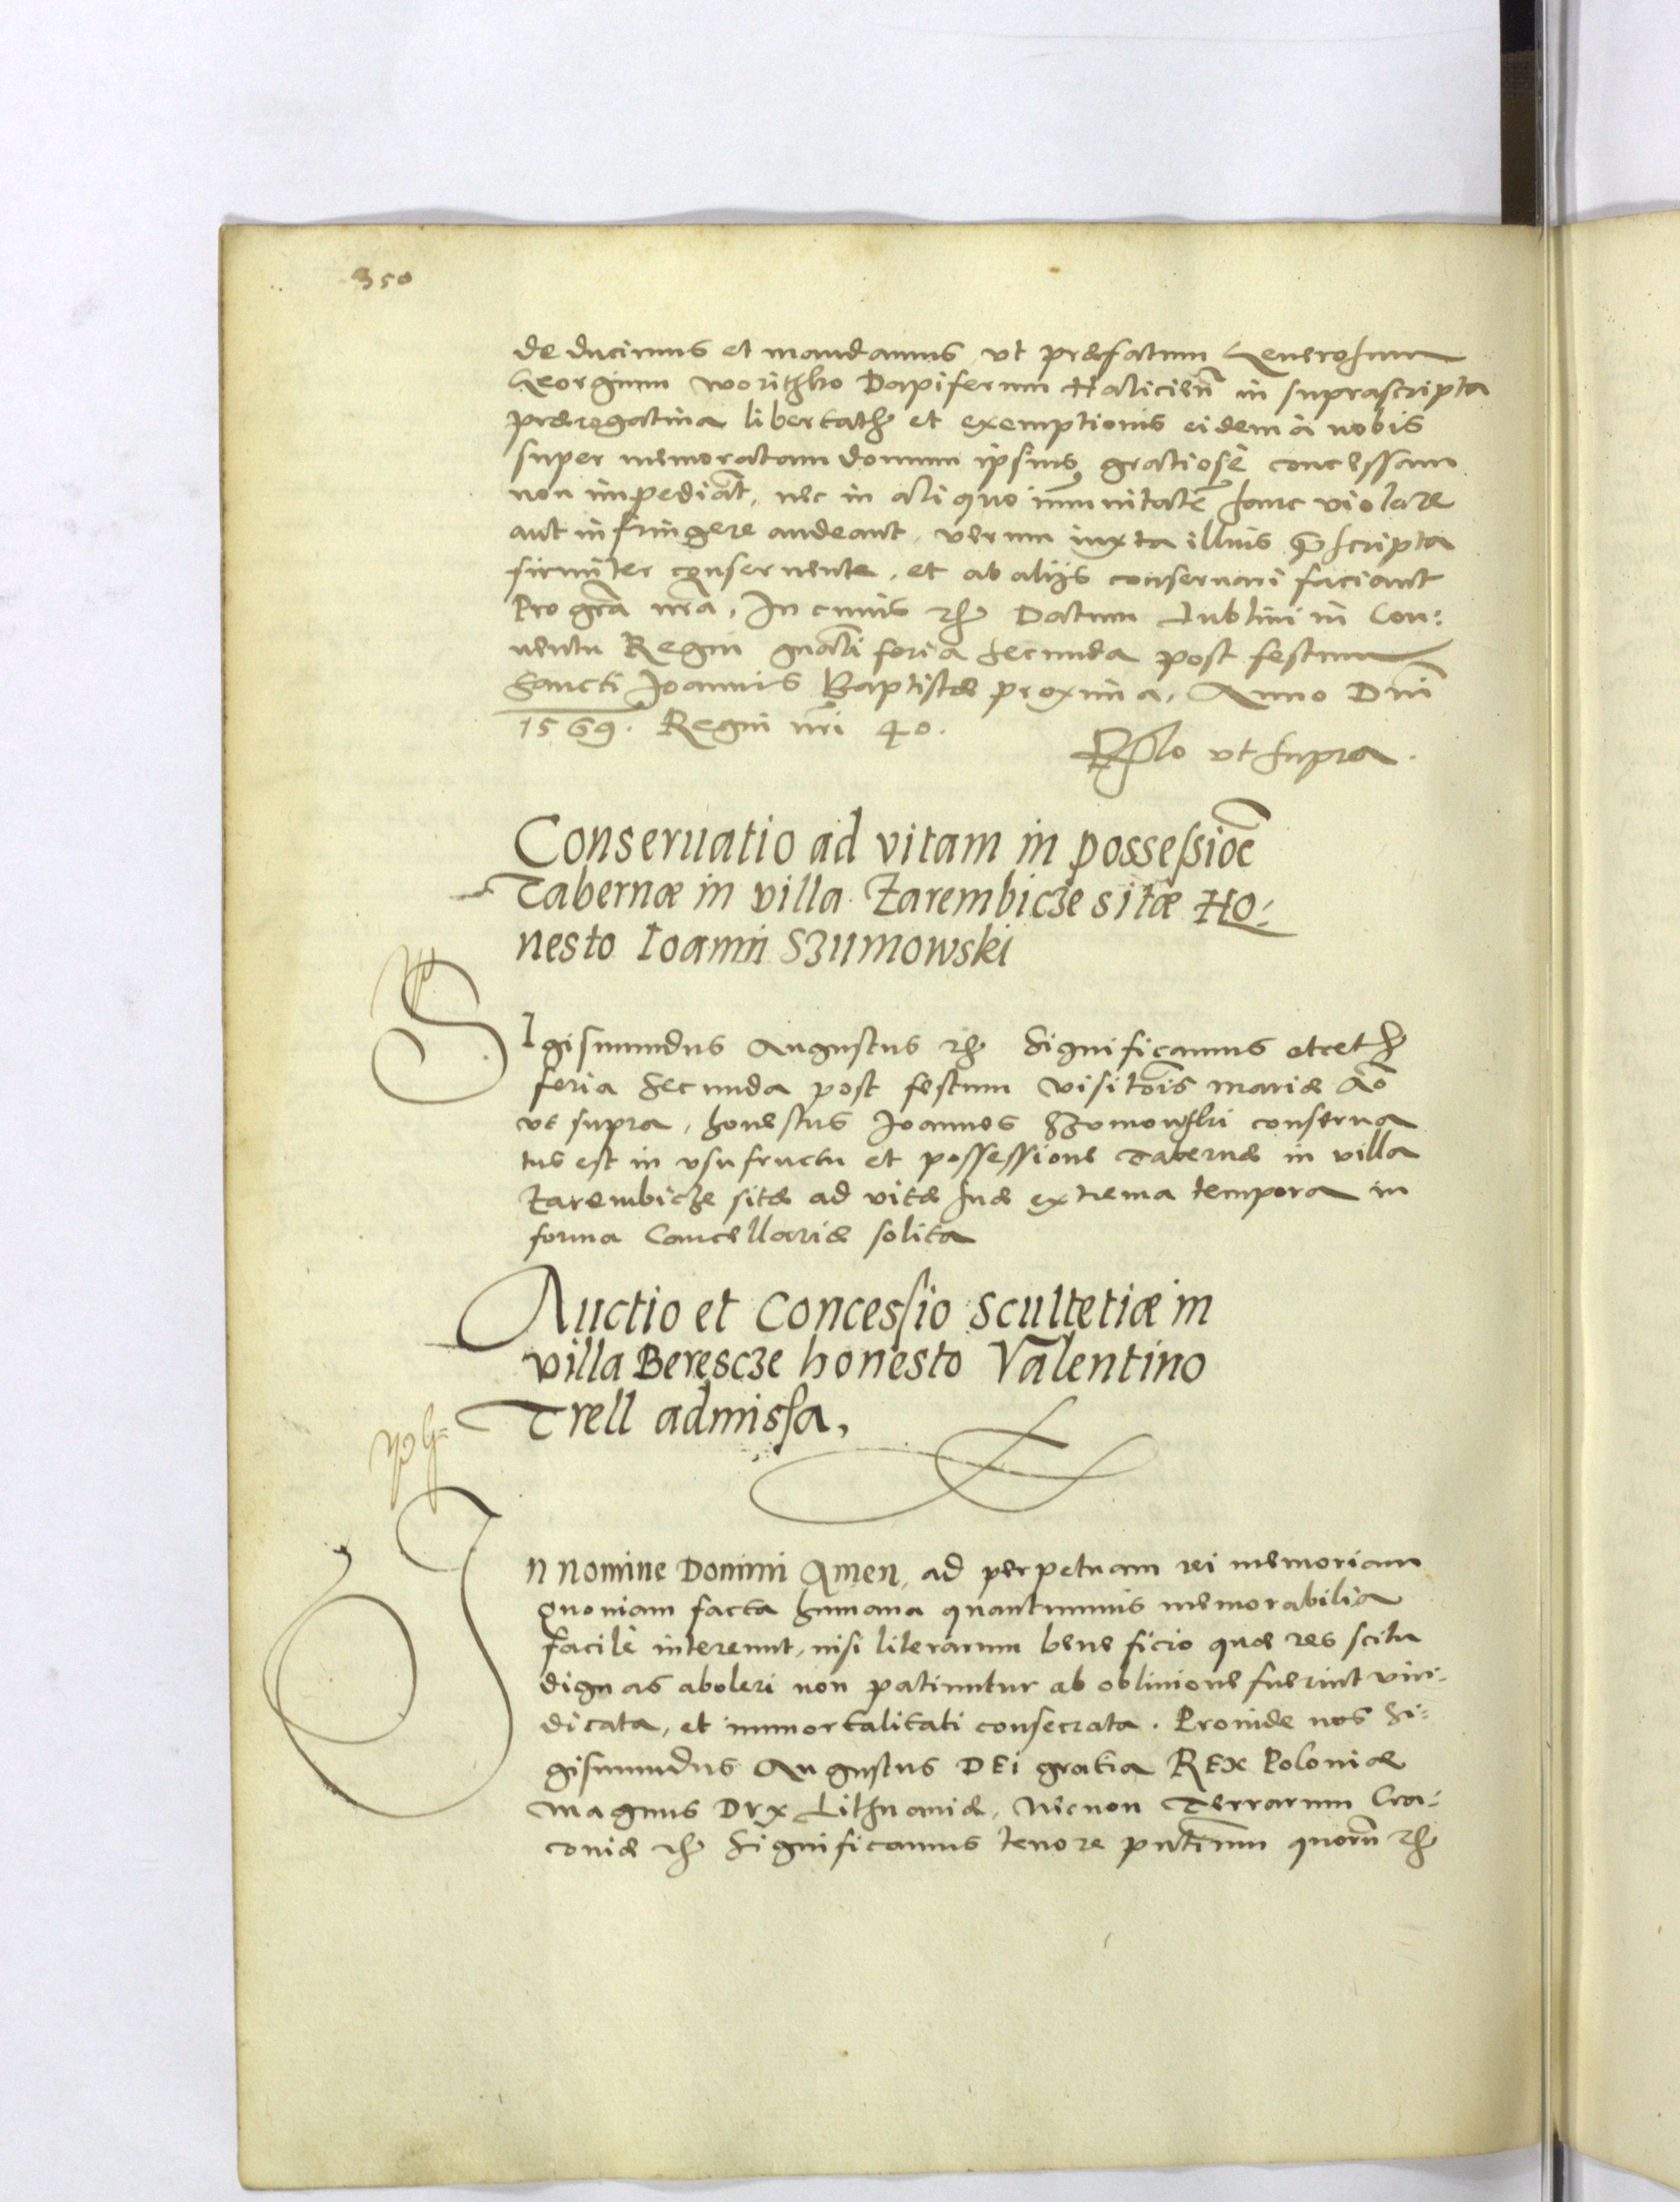 350
deducimus et mandamus, vt præfatum Generosum
Georgium Worithko Dapiferum Halicien̄ in suprascripta
prærogatiua libertatis et exemptionis eidem à nobis
super memoratam domum ipsius gratiosè concessam
non impediāt, nec in aliquo im̄unitatē hanc violare
aut infringere audeant, verum iuxta illius p̄scripta
firmiter conseruent, et ab alijs conseruari faciant
Pro grā nrā. In cuius rei Datum Lublini in Con:
uentu Regni gnāli feria secunda post festum
Sancti Joannis Baptistæ proxima, Anno Dnī
1569. Regni nrī 40.
vt supra.
Conseruatio ad vitam in possessioē
Tabernæ in villa Zarembicze sitæ Ho:
nesto Ioanni Szumowski
SIgismundus Augustus etc Significamus etcet
feria secunda post festum visitōis mariæ Aō
vt supra, honestus Joannes Szumowski conserua
tus est in vsufructu et possessione Tabernæ in villa
Zarembicze sitæ ad vitæ suæ extrema tempora in
forma Cancellariæ solita
Auctio et Concessio Scultetiæ in
villa Berescze honesto Valentino
Trell admissa,
In nomine Domini Amen, ad perpetuam rei memoriam
Quoniam facta humana quantumuis memorabilia
facilè intereunt, nisi literarum beneficio quæ res scitu
dignas aboleri non patiuntur ab obliuione fuerint vin:
dicata, et immortalitati consecrata. Proinde nos Si:
gismundus Augustus DEi gratia REX Poloniæ
magnus Dvx Lithuaniæ, Necnon Terrarum Cra:
couiæ etc Significamus tenore pn̄tium quorū etc